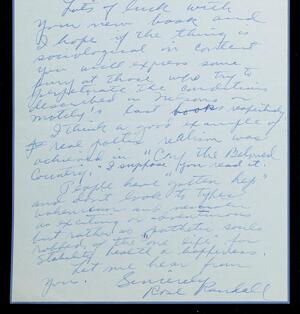 Lots of luck with
your new book and
I hope if the thing is
sociological in content
you will express some
fury at those who try to
perpetrate the conditions
described in
last books respectively.
I think a good example of
real poetic realism was
achieved in "Cry the Beloved
Country." I suppose you read it.
People have gotten "hep"
and don't look to types
as exciting or adventurous
but rather as pathetic souls
robbed of the one life for
stability health & happiness.
Let me hear from
you. Sincerely
Rose Randall